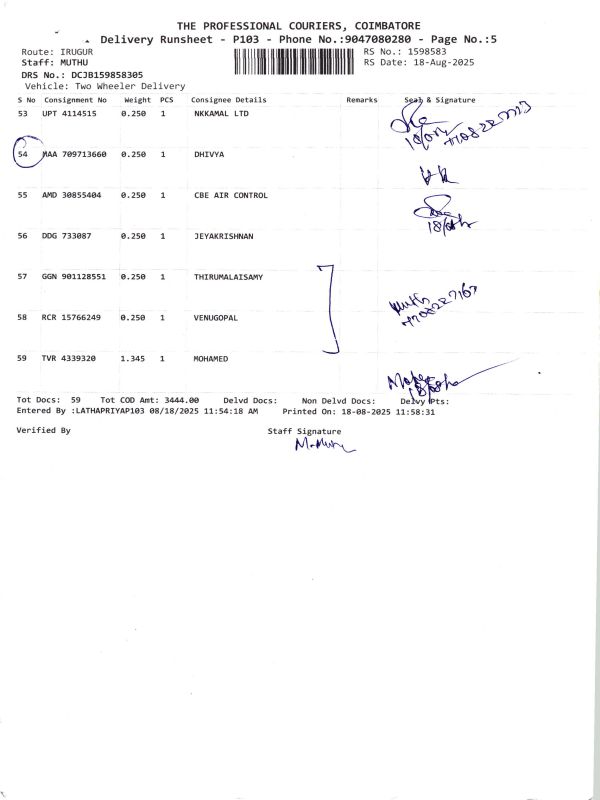 THE PROFESSIONAL COURIERS, COIMBATORE
Delivery Runsheet - P103 - Phone No.:9047080280 - Page No.:5
Route: IRUGUR RS No.: 1598583
Staff: MUTHU RS Date: 18-Aug-2025
DRS No.: DCJB159858305
Vehicle: Two Wheeler Delivery
S No Consignment No Weight PCS Consignee Details Remarks Seal & Signature
53 UPT 4114515 0.250 1 NKKAMAL LTD
54 MAA 709713660 0.250 1 DHIVYA
55 AMD 30855404 0.250 1 CBE AIR CONTROL
56 DDG 733087 0.250 1 JEYAKRISHNAN
57 GGN 901128551 0.250 1 THIRUMALAISAMY
58 RCR 15766249 0.250 1 VENUGOPAL
59 TVR 4339320 1.345 1 MOHAMED
Tot Docs: 59 Tot COD Amt: 3444.00 Delvd Docs: Non Delvd Docs: Delvy Pts:
Entered By :LATHAPRIYAP103 08/18/2025 11:54:18 AM Printed On: 18-08-2025 11:58:31
Verified By Staff Signature